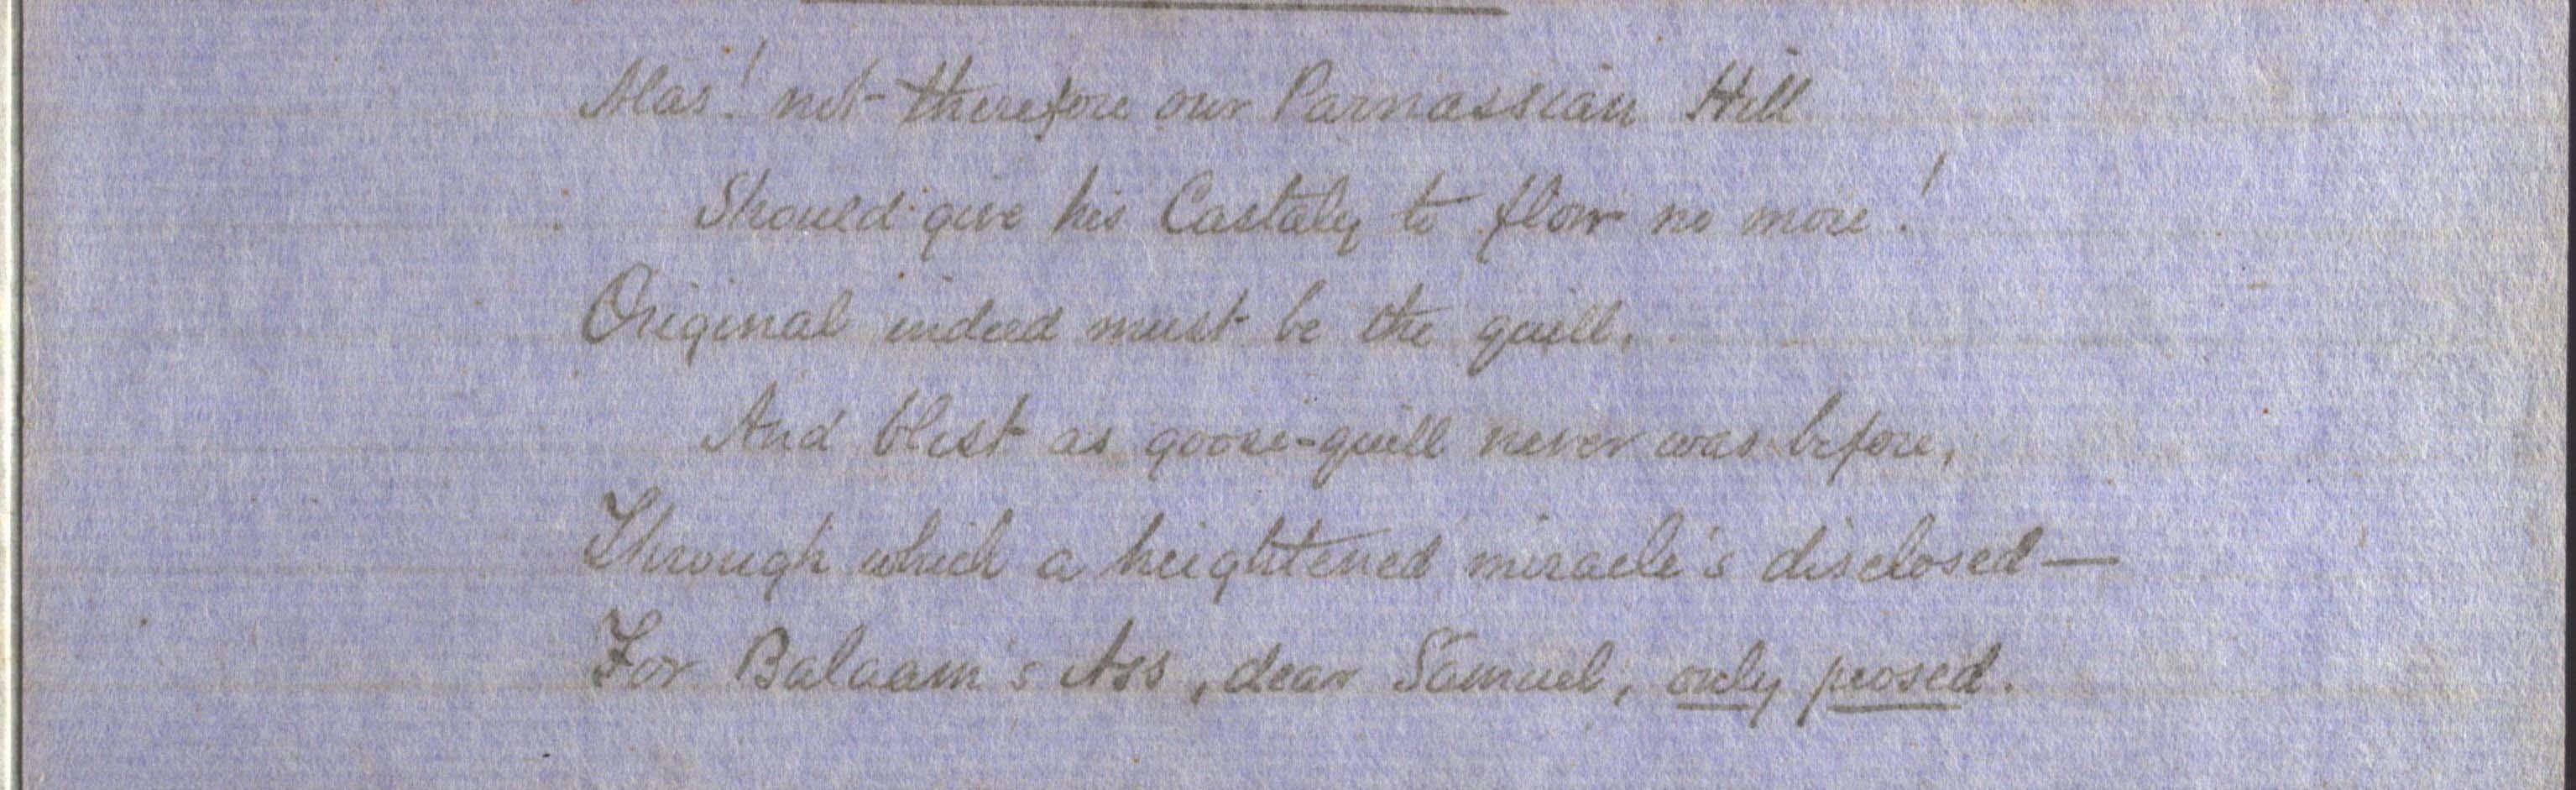 Alas! not therefore our Parnassian Hill
Should give his Castaly to flow no more!
Original indeed must be the quill,
And blest as goose-quill never was before,
Through which a heightened miracle's disclosed—
For Balaam's Ass, dear Samuel, only prosed.